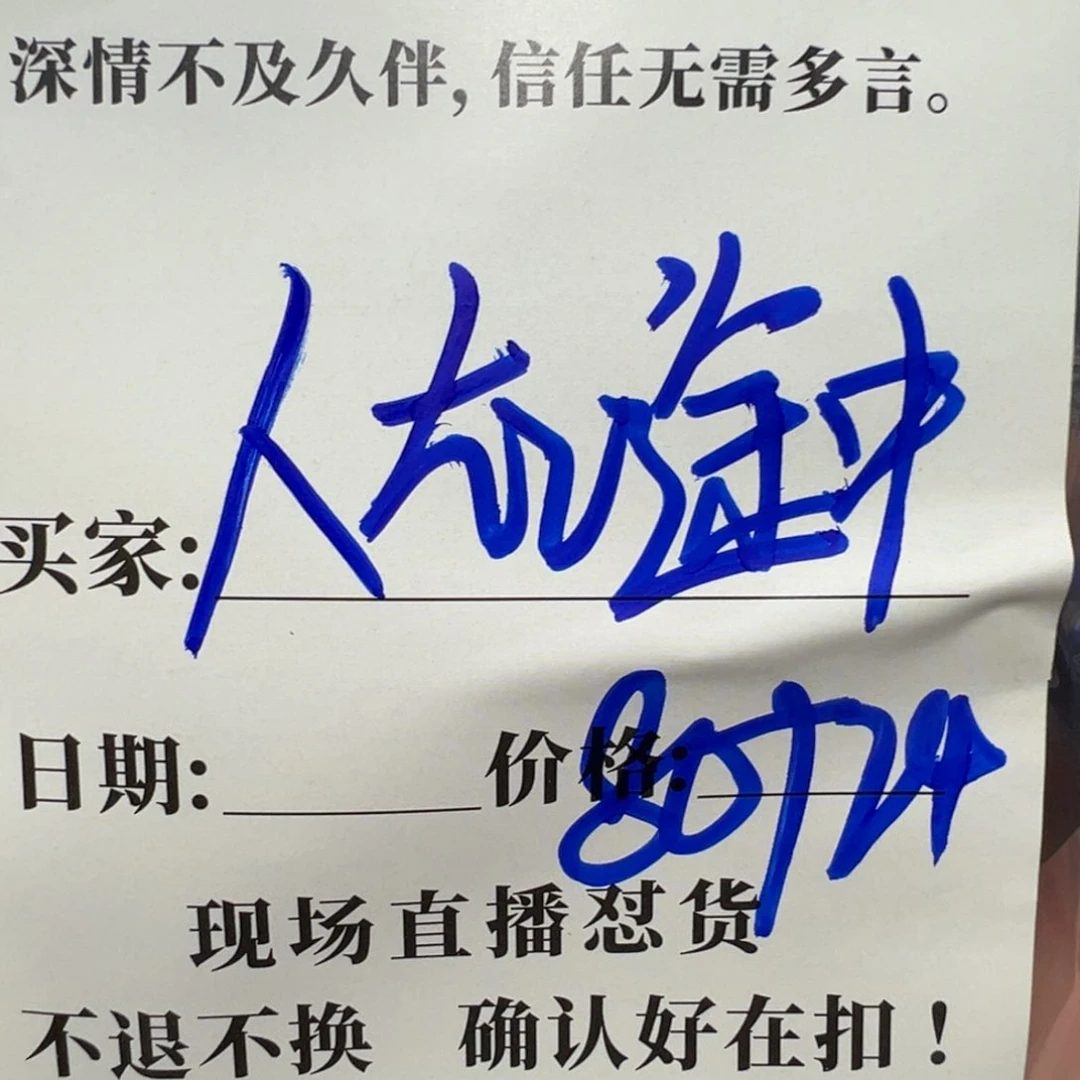 深情不及久伴，信任无需多言。
买家：人在途中
日期：
价格：
现场直播怼货
不退不换 确认好在扣！